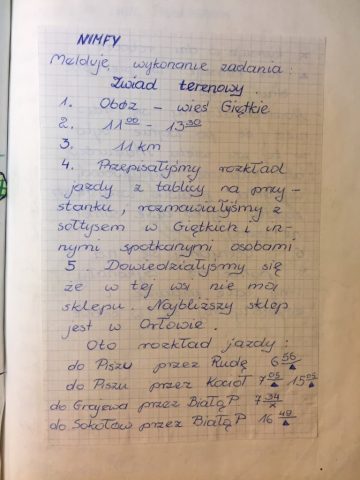 NIMFY
Melduję wykonanie zadania:
Zwiad terenowy.
1. Obóz – wieś Giętkie
2. 11⁰⁰ – 13³⁰
3. 11 km
4. Przepisałyśmy rozkład
jazdy z tablicy na przy-
stanku, rozmawiałyśmy z
sołtysem w Giętkich i in-
nymi spotkanymi osobami
5. Dowiedziałyśmy się
że w tej wsi nie ma
sklepu. Najbliższy sklep
jest w Orłowie.
Oto rozkład jazdy:
do Piszu przez Rudę 6⁵⁶
do Piszu przez Kocioł 7⁰⁵ 15⁰⁵
do Grajewa przez Białą P 7³⁴
do Sokołów przez Białą P 16⁴⁹